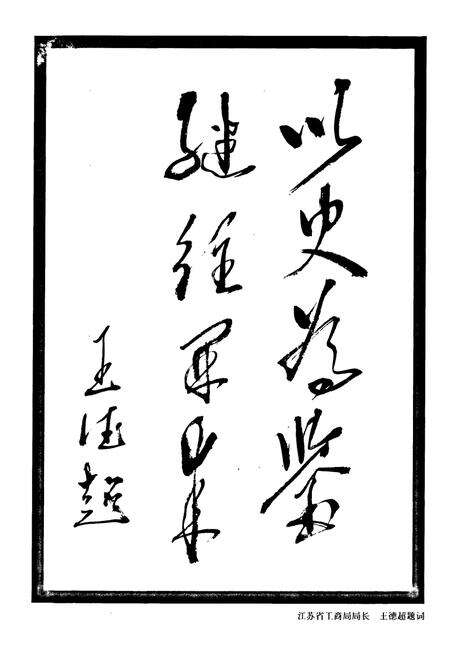 以史为鉴
继往开来
王德超
江苏省工商局局长　王德超题词